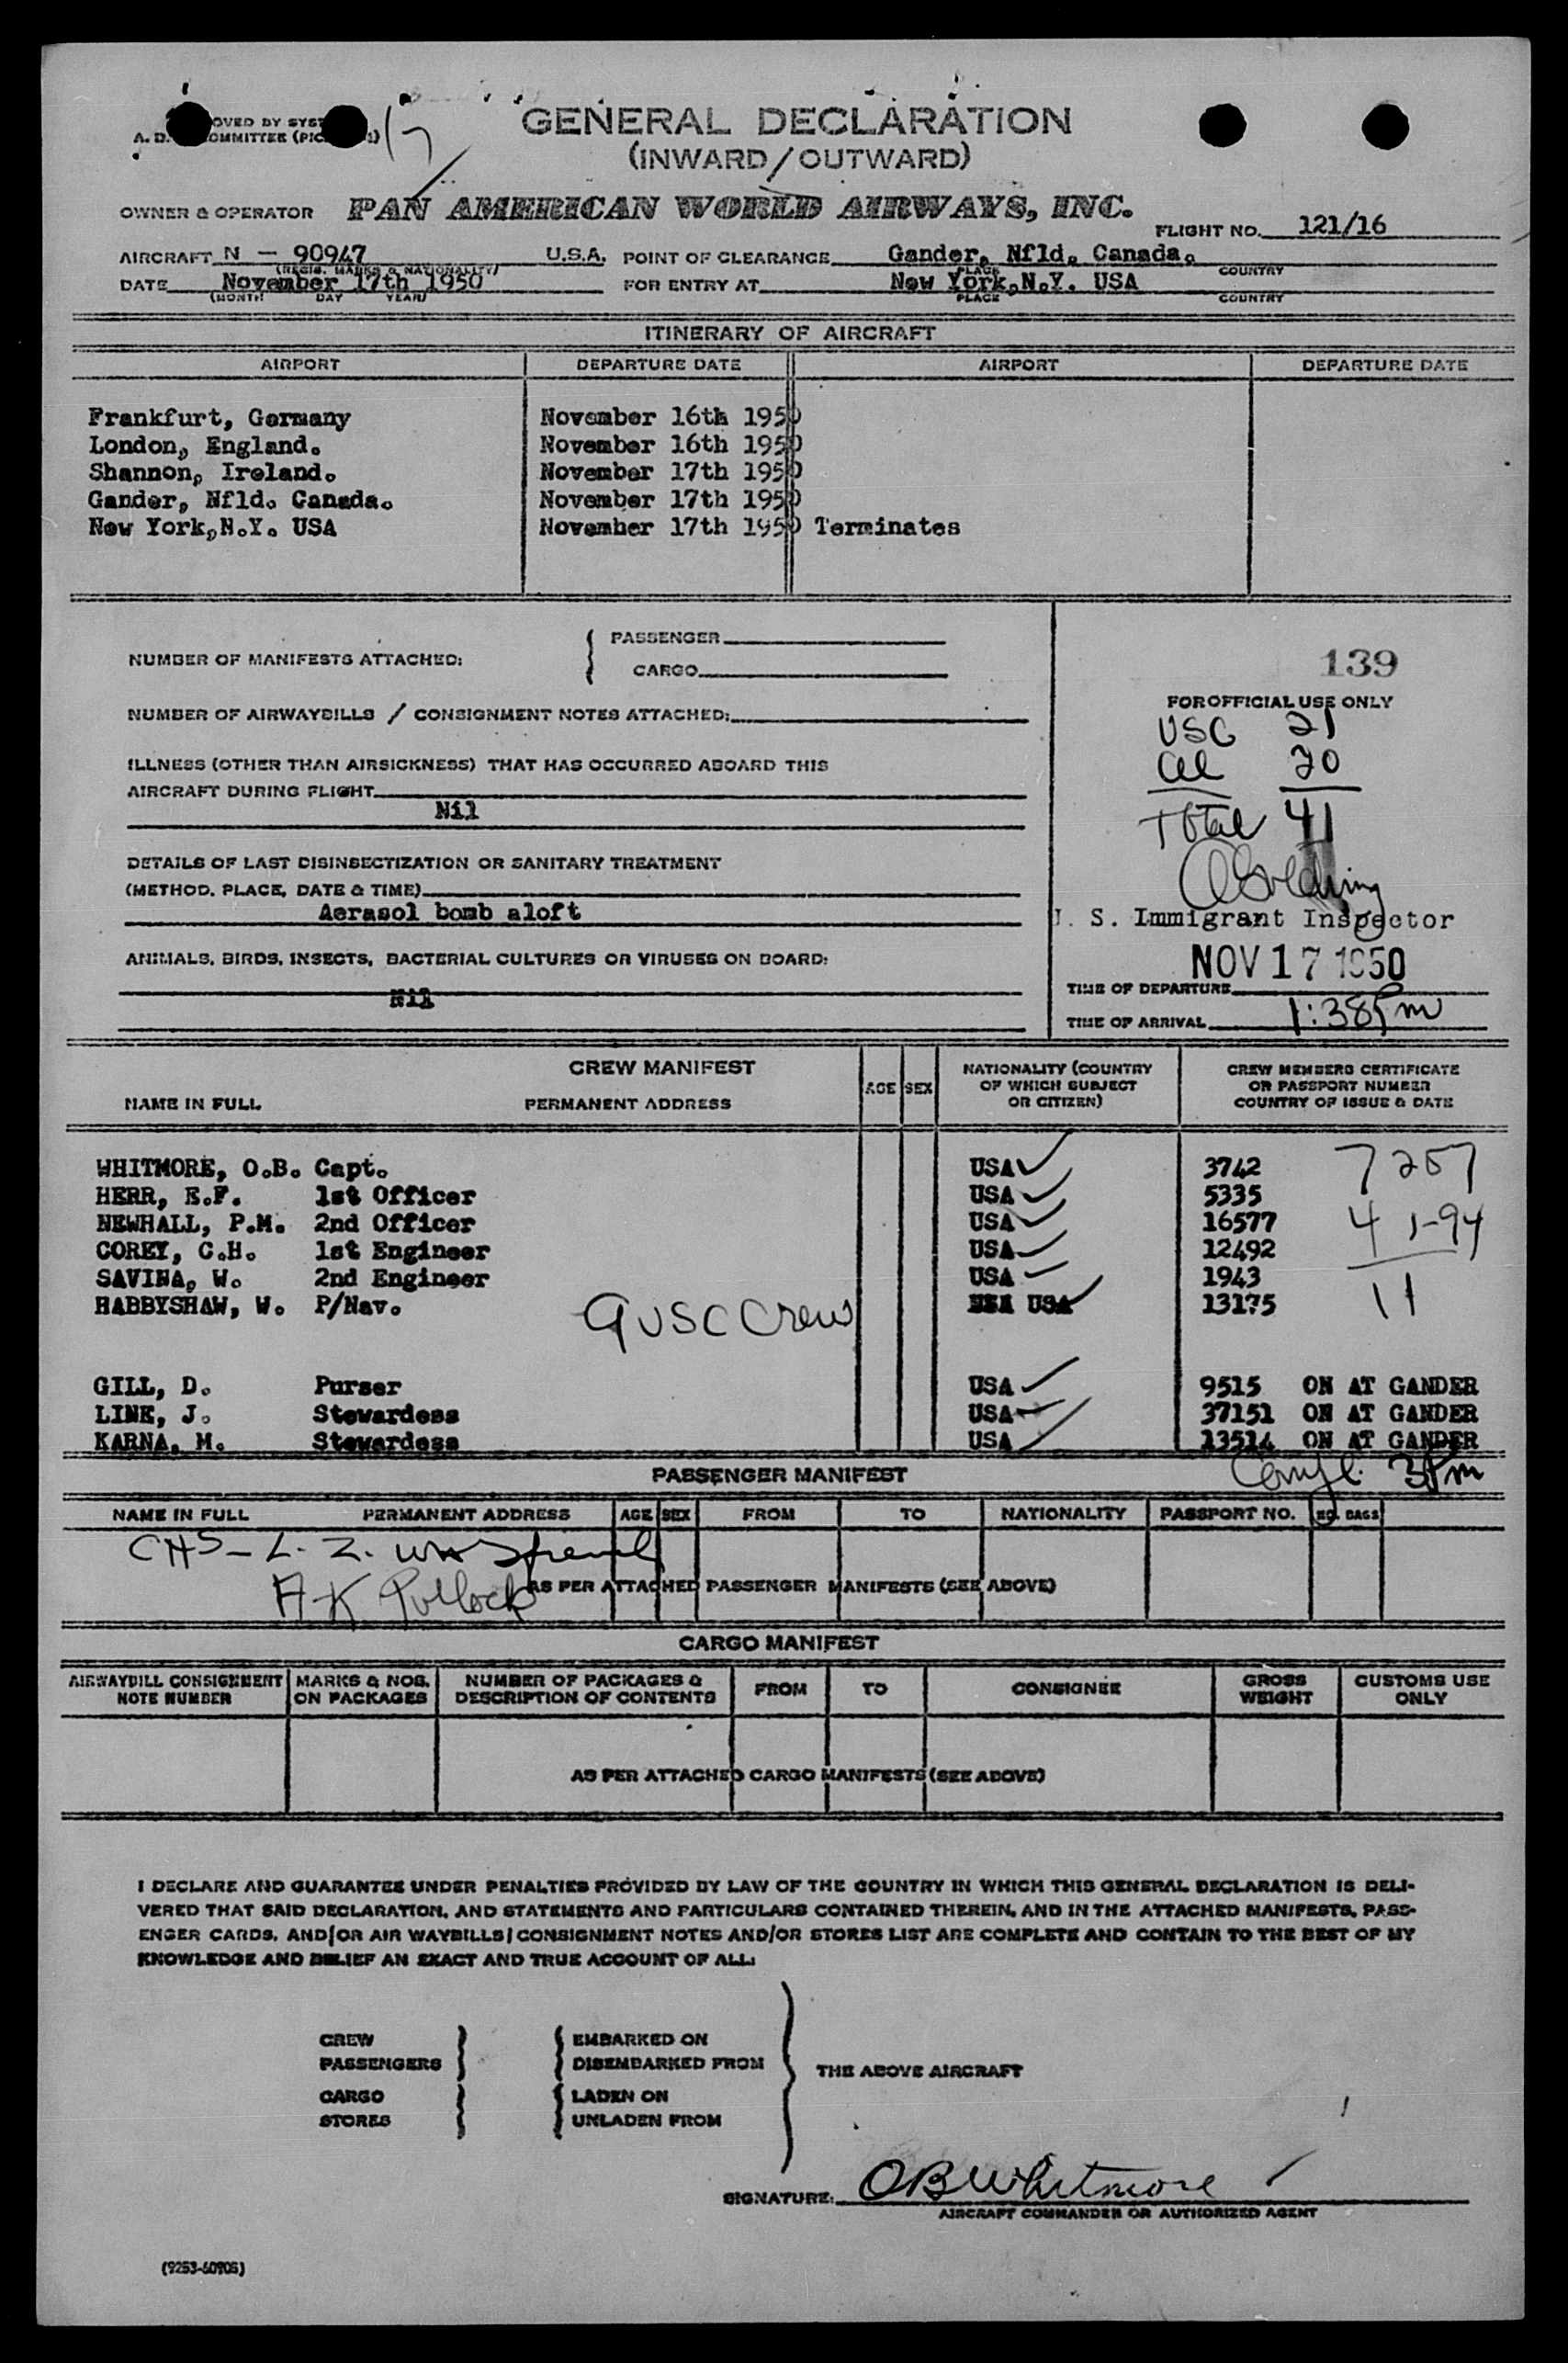 OVED BY SYST
GENERAL DECLARATION
A. D. OMMITTEE (PIC
(INWARD/OUTWARD)
OWNER & OPERATOR PAN AMERICAN WORLD AIRWAYS, INC.
FLIGHT NO. 121/16
AIRCRAFT N - 90947 U.S.A. POINT OF CLEARANCE Gander, Nfld. Canada.
(REGIS. MARKS & NATIONALITY) PLACE COUNTRY
DATE November 17th 1950 FOR ENTRY AT New York,N.Y. USA
(MONTH DAY YEAR) PLACE COUNTRY
ITINERARY OF AIRCRAFT
AIRPORT DEPARTURE DATE AIRPORT DEPARTURE DATE
Frankfurt, Germany November 16th 1950
London, England. November 16th 1950
Shannon, Ireland. November 17th 1950
Gander, Nfld. Canada. November 17th 1950
New York,N.Y. USA November 17th 1950 Terminates
NUMBER OF MANIFESTS ATTACHED: PASSENGER
CARGO
139
NUMBER OF AIRWAYBILLS / CONSIGNMENT NOTES ATTACHED:
FOR OFFICIAL USE ONLY
USC 21
al 20
Total 41
ILLNESS (OTHER THAN AIRSICKNESS) THAT HAS OCCURRED ABOARD THIS
AIRCRAFT DURING FLIGHT
Nil
DETAILS OF LAST DISINSECTIZATION OR SANITARY TREATMENT
(METHOD, PLACE, DATE & TIME)
Aerasol bomb aloft
. S. Immigrant Inspector
NOV 17 1950
ANIMALS, BIRDS, INSECTS, BACTERIAL CULTURES OR VIRUSES ON BOARD:
Nil
TIME OF DEPARTURE
TIME OF ARRIVAL 1:38Pm
CREW MANIFEST
NAME IN FULL PERMANENT ADDRESS AGE SEX NATIONALITY (COUNTRY
OF WHICH SUBJECT
OR CITIZEN) CREW MEMBERS CERTIFICATE
OR PASSPORT NUMBER
COUNTRY OF ISSUE & DATE
WHITMORE, O.B. Capt. USA 3742 7257
HERR, E.F. 1st Officer USA 5335
NEWHALL, P.M. 2nd Officer USA 16577
COREY, C.H. 1st Engineer USA 12492
SAVINA, W. 2nd Engineer USA 1943
HABBYSHAW, W. P/Nav. USA 13175 11
9 USC Crew
GILL, D. Purser USA 9515 ON AT GANDER
LINK, J. Stewardess USA 37151 ON AT GANDER
KARNA, M. Stewardess USA 13514 ON AT GANDER
PASSENGER MANIFEST 3Pm
NAME IN FULL PERMANENT ADDRESS AGE SEX FROM TO NATIONALITY PASSPORT NO. NO. BAGS
AS PER ATTACHED PASSENGER MANIFESTS (SEE ABOVE)
A K Pollock
CARGO MANIFEST
AIRWAYBILL CONSIGNMENT
NOTE NUMBER MARKS & NOS.
ON PACKAGES NUMBER OF PACKAGES &
DESCRIPTION OF CONTENTS FROM TO CONSIGNEE GROSS
WEIGHT CUSTOMS USE
ONLY
AS PER ATTACHED CARGO MANIFESTS (SEE ABOVE)
I DECLARE AND GUARANTEE UNDER PENALTIES PROVIDED BY LAW OF THE COUNTRY IN WHICH THIS GENERAL DECLARATION IS DELI-
VERED THAT SAID DECLARATION, AND STATEMENTS AND PARTICULARS CONTAINED THEREIN, AND IN THE ATTACHED MANIFESTS, PASS-
ENGER CARDS, AND/OR AIR WAYBILLS/CONSIGNMENT NOTES AND/OR STORES LIST ARE COMPLETE AND CONTAIN TO THE BEST OF MY
KNOWLEDGE AND BELIEF AN EXACT AND TRUE ACCOUNT OF ALL:
CREW EMBARKED ON
PASSENGERS DISEMBARKED FROM
THE ABOVE AIRCRAFT
CARGO LADEN ON
STORES UNLADEN FROM
SIGNATURE: OB Whitmore
AIRCRAFT COMMANDER OR AUTHORIZED AGENT
(9253-60905)